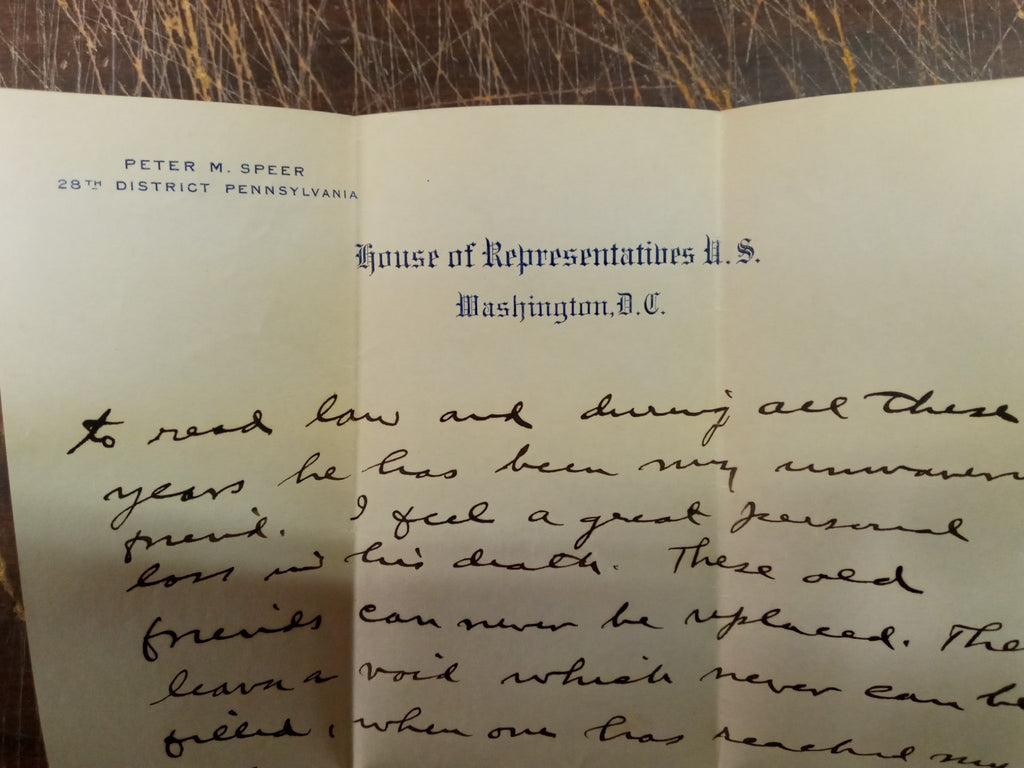 PETER M. SPEER
28TH DISTRICT PENNSYLVANIA
House of Representatives U. S.
Washington, D. C.
to read law and during all these
years he has been my
friend. I feel a great personal
loss in his death. These old
friends can never be replaced. The
leave a void which never can be
filled, when one has reached my